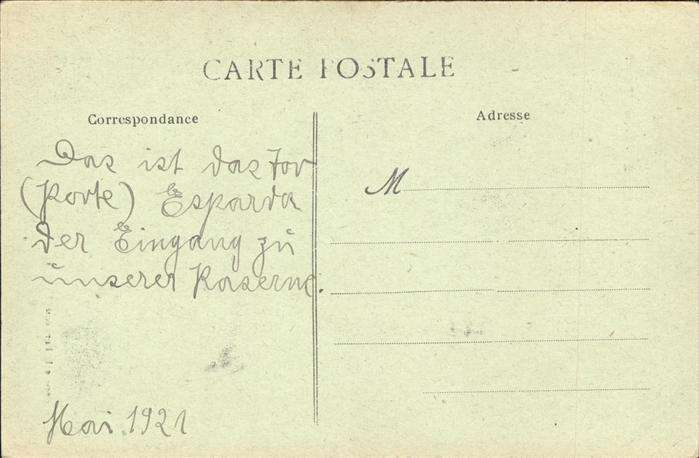 CARTE POSTALE
Correspondance
Adresse
Das ist das Tor
(Porte) Esparda
der Eingang zu
unserer Kaserne.
M
Mai 1921